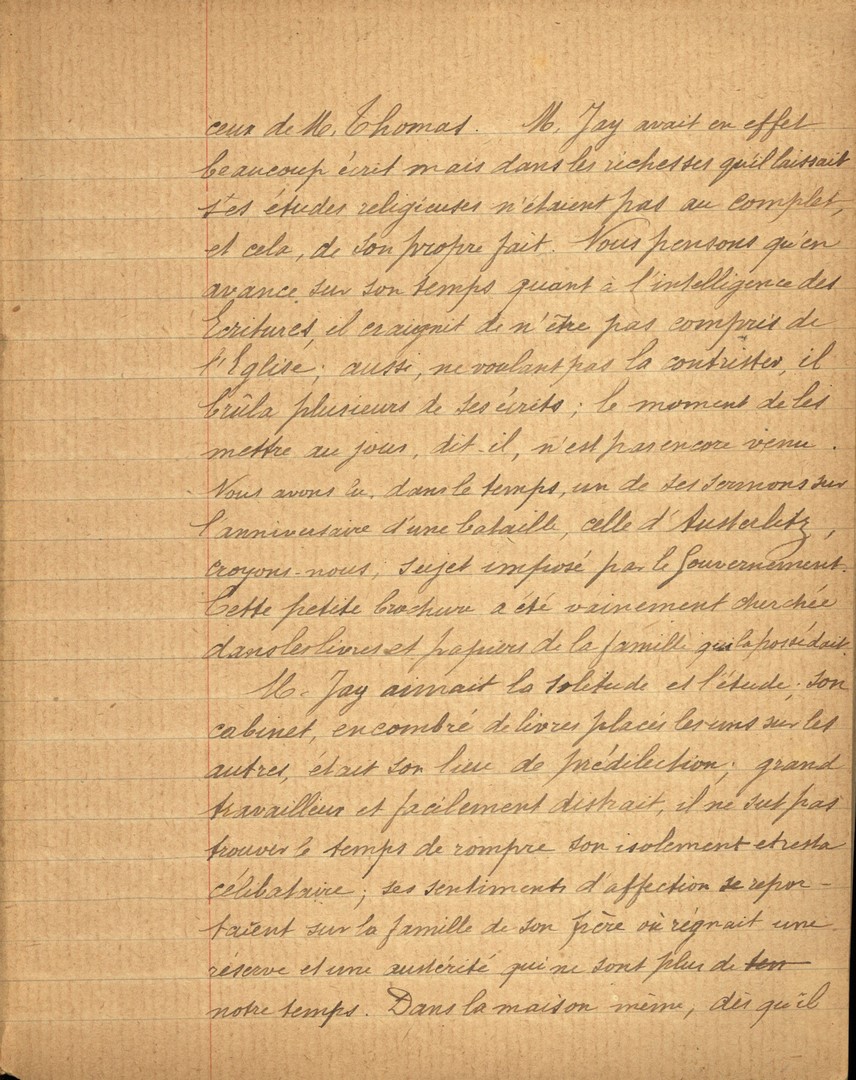 ceux de M. Thomas. M. Jay avait en effet
beaucoup écrit mais dans les richesses qu'il laissait
ses études religieuses n'étaient pas au complet,
et cela, de son propre fait. Nous pensons qu'en
avance sur son temps quant à l'intelligence des
Ecritures, il craignit de n'être pas compris de
l'Eglise; aussi, ne voulant pas la contrister, il
brûla plusieurs de ses écrits; le moment de les
mettre au jour, dit-il, n'est pas encore venu.
Nous avons lu, dans le temps, un de ses sermons sur
l'anniversaire d'une bataille, celle d'Austerlitz,
croyons-nous, sujet imposé par le Gouvernement.
Cette petite brochure a été vainement cherchée
dans les livres et papiers de la famille qui la possédait.
M. Jay aimait la solitude et l'étude; son
cabinet, encombré de livres placés les uns sur les
autres, était son lieu de prédilection; grand
travailleur et facilement distrait, il ne sut pas
trouver le temps de rompre son isolement et resta
célibataire; ses sentiments d'affection se repor-
taient sur la famille de son frère où régnait une
réserve et une austérité qui ne sont plus de ten
notre temps. Dans la maison même, dès qu'il